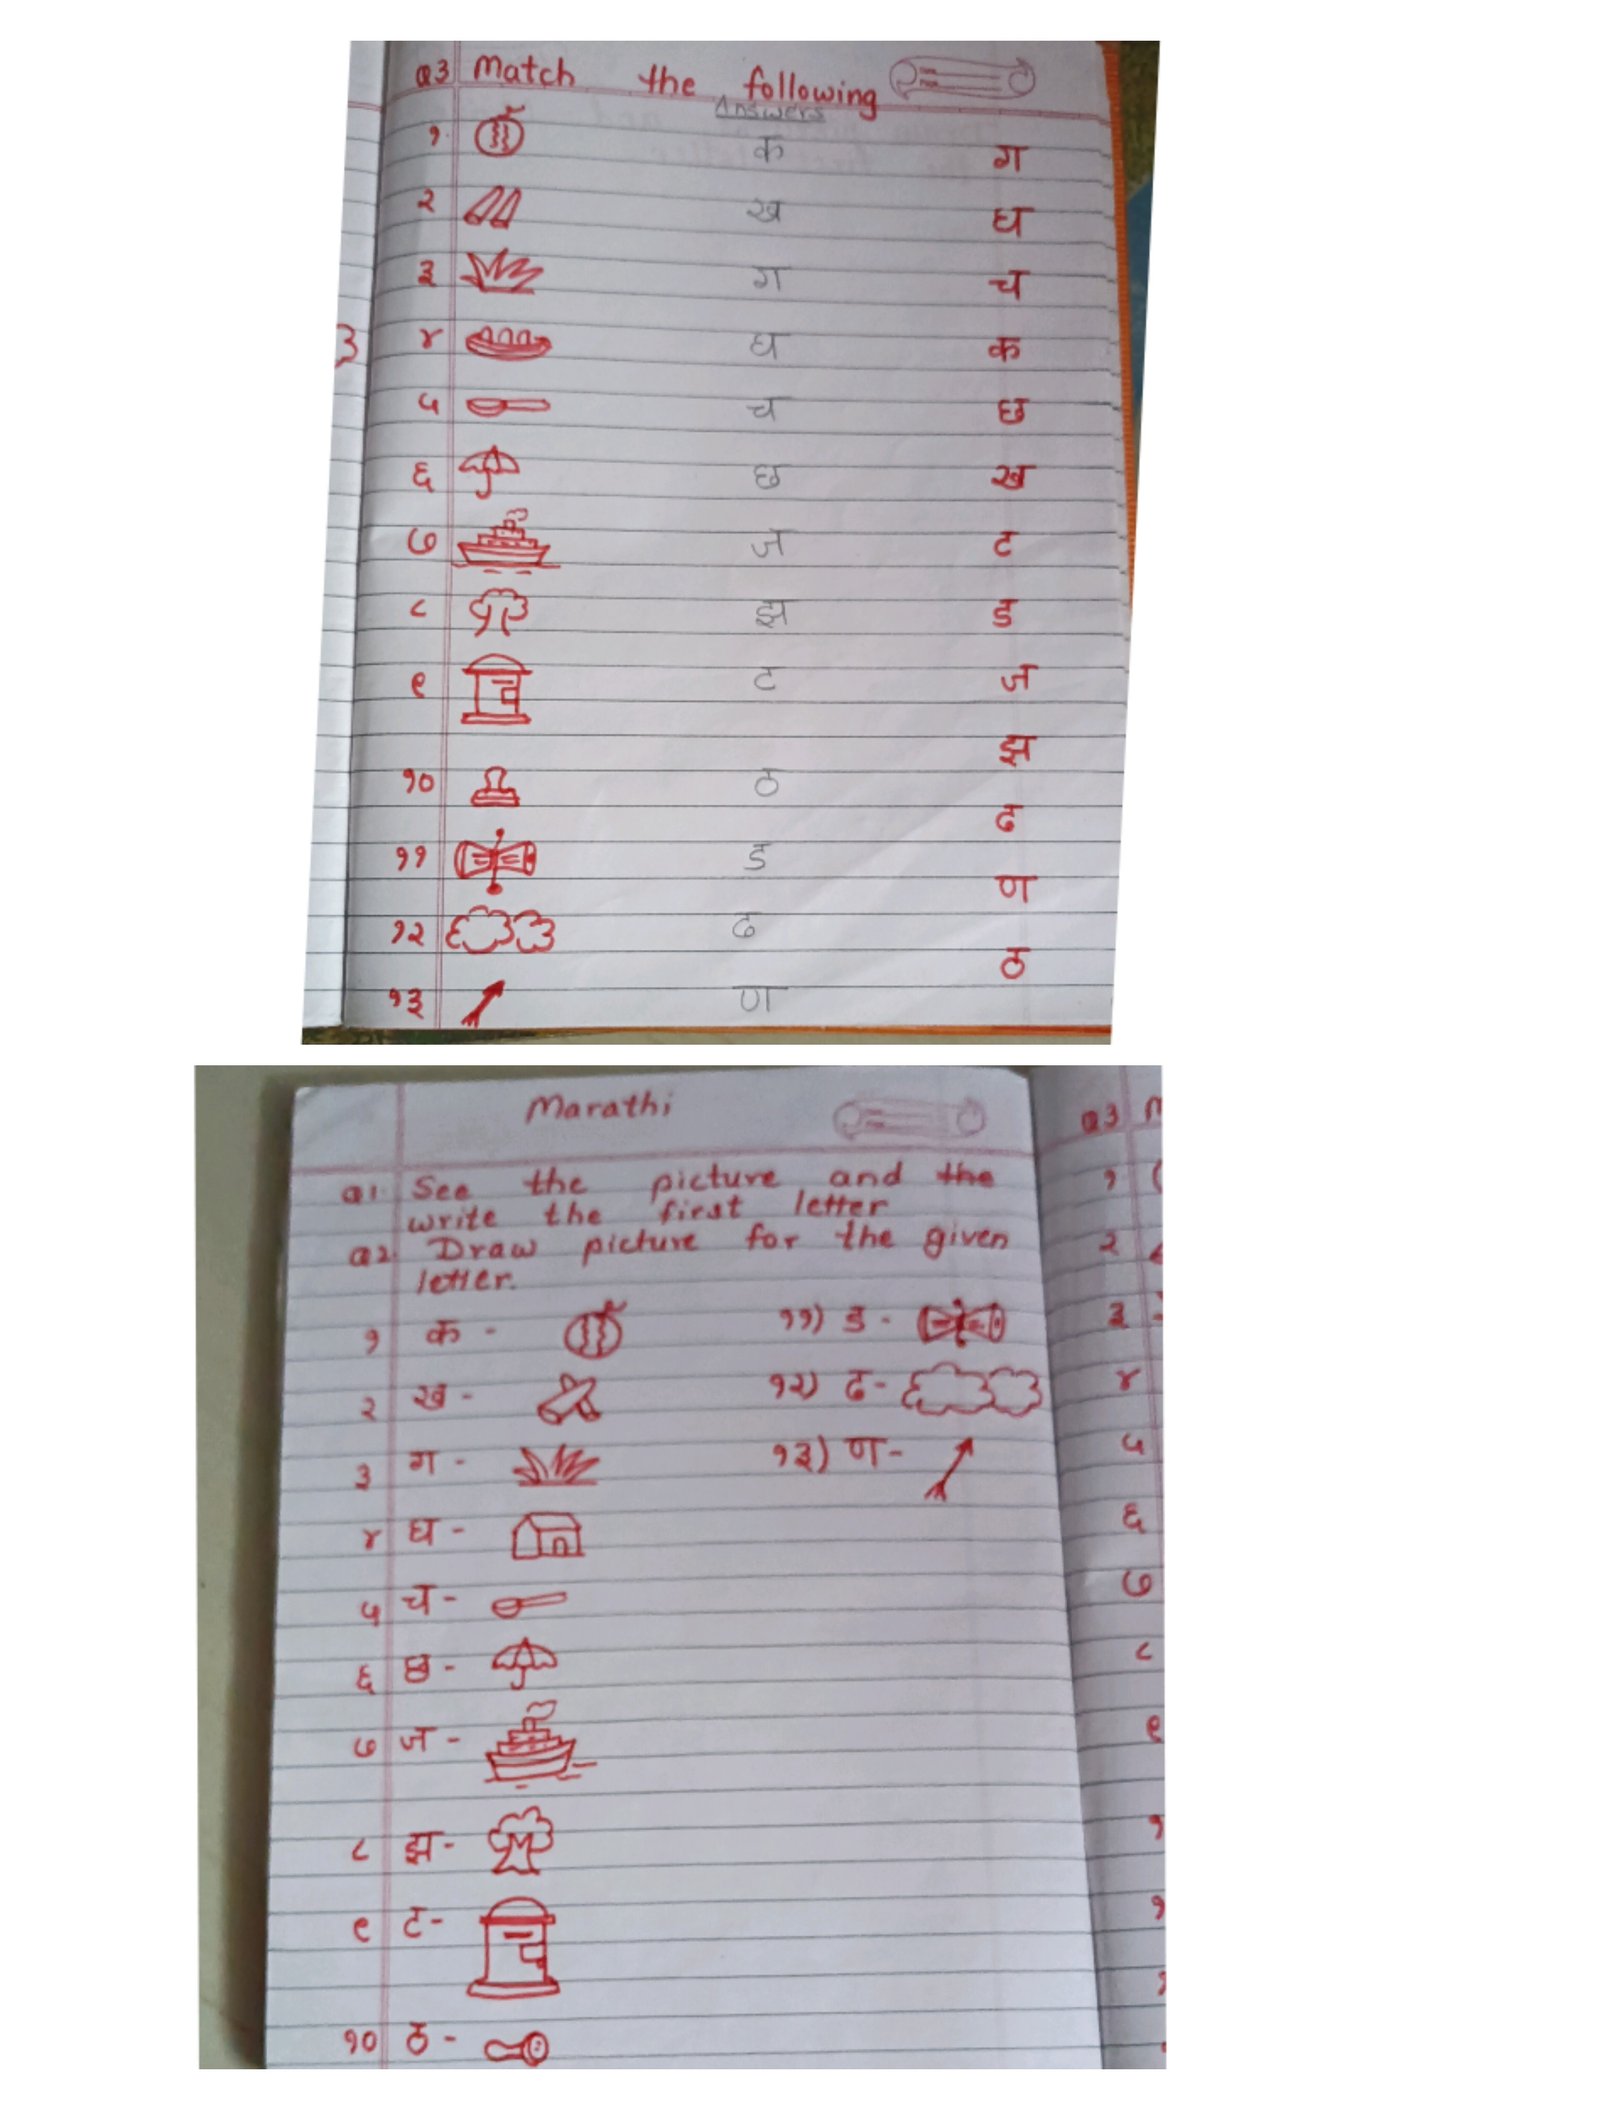 Q3 Match the following
Answers
१. क ग
२ ख घ
३ ग च
४ घ क
५ च छ
६ छ ख
७ ज ट
८ झ ड
९ ट ज
झ
१० ठ
ढ
११ ड
ण
१२ ढ
ठ
१३ ण
Marathi
Q1. See the picture and the
write the first letter
Q2. Draw picture for the given
letter.
१ क -
२ ख -
३ ग -
४ घ -
५ च -
६ छ -
७ ज -
८ झ -
९ ट -
१० ठ -
११) ड -
१२) ढ -
१३) ण -
Q3
१
२
३
४
५
६
७
८
९